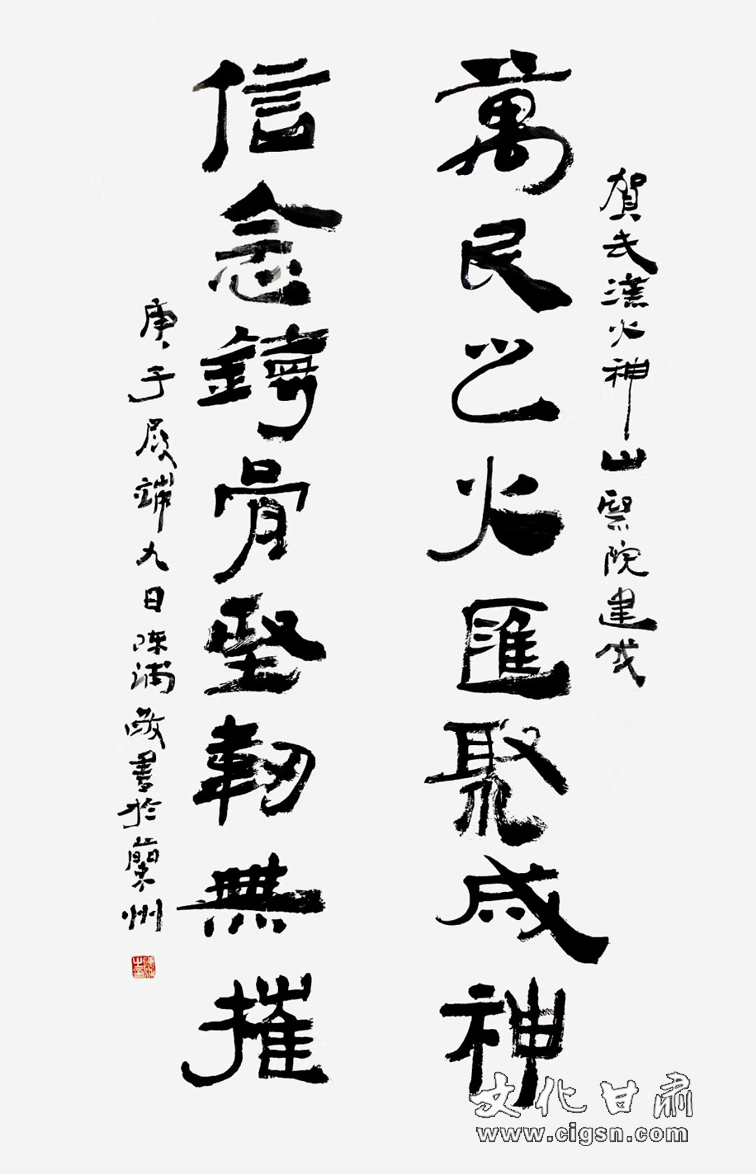 賀武漢火神山醫院建成
萬民之火匯聚成神
信念鑄骨堅韌無摧
庚子履端九日陳書於蘭州
文化甘肃
www.cigsn.com